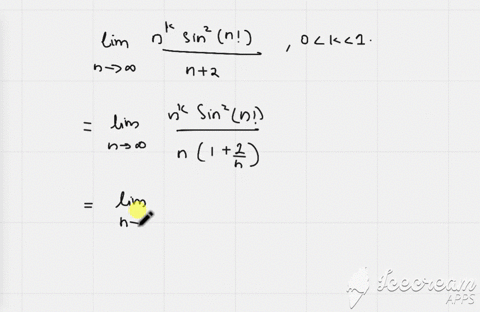 lim n→∞ n^k sin²(n!) / n+2 , 0<k<1.
= lim n→∞ n^k sin²(n!) / n(1+2/n)
= lim n→
Icecream
APPS